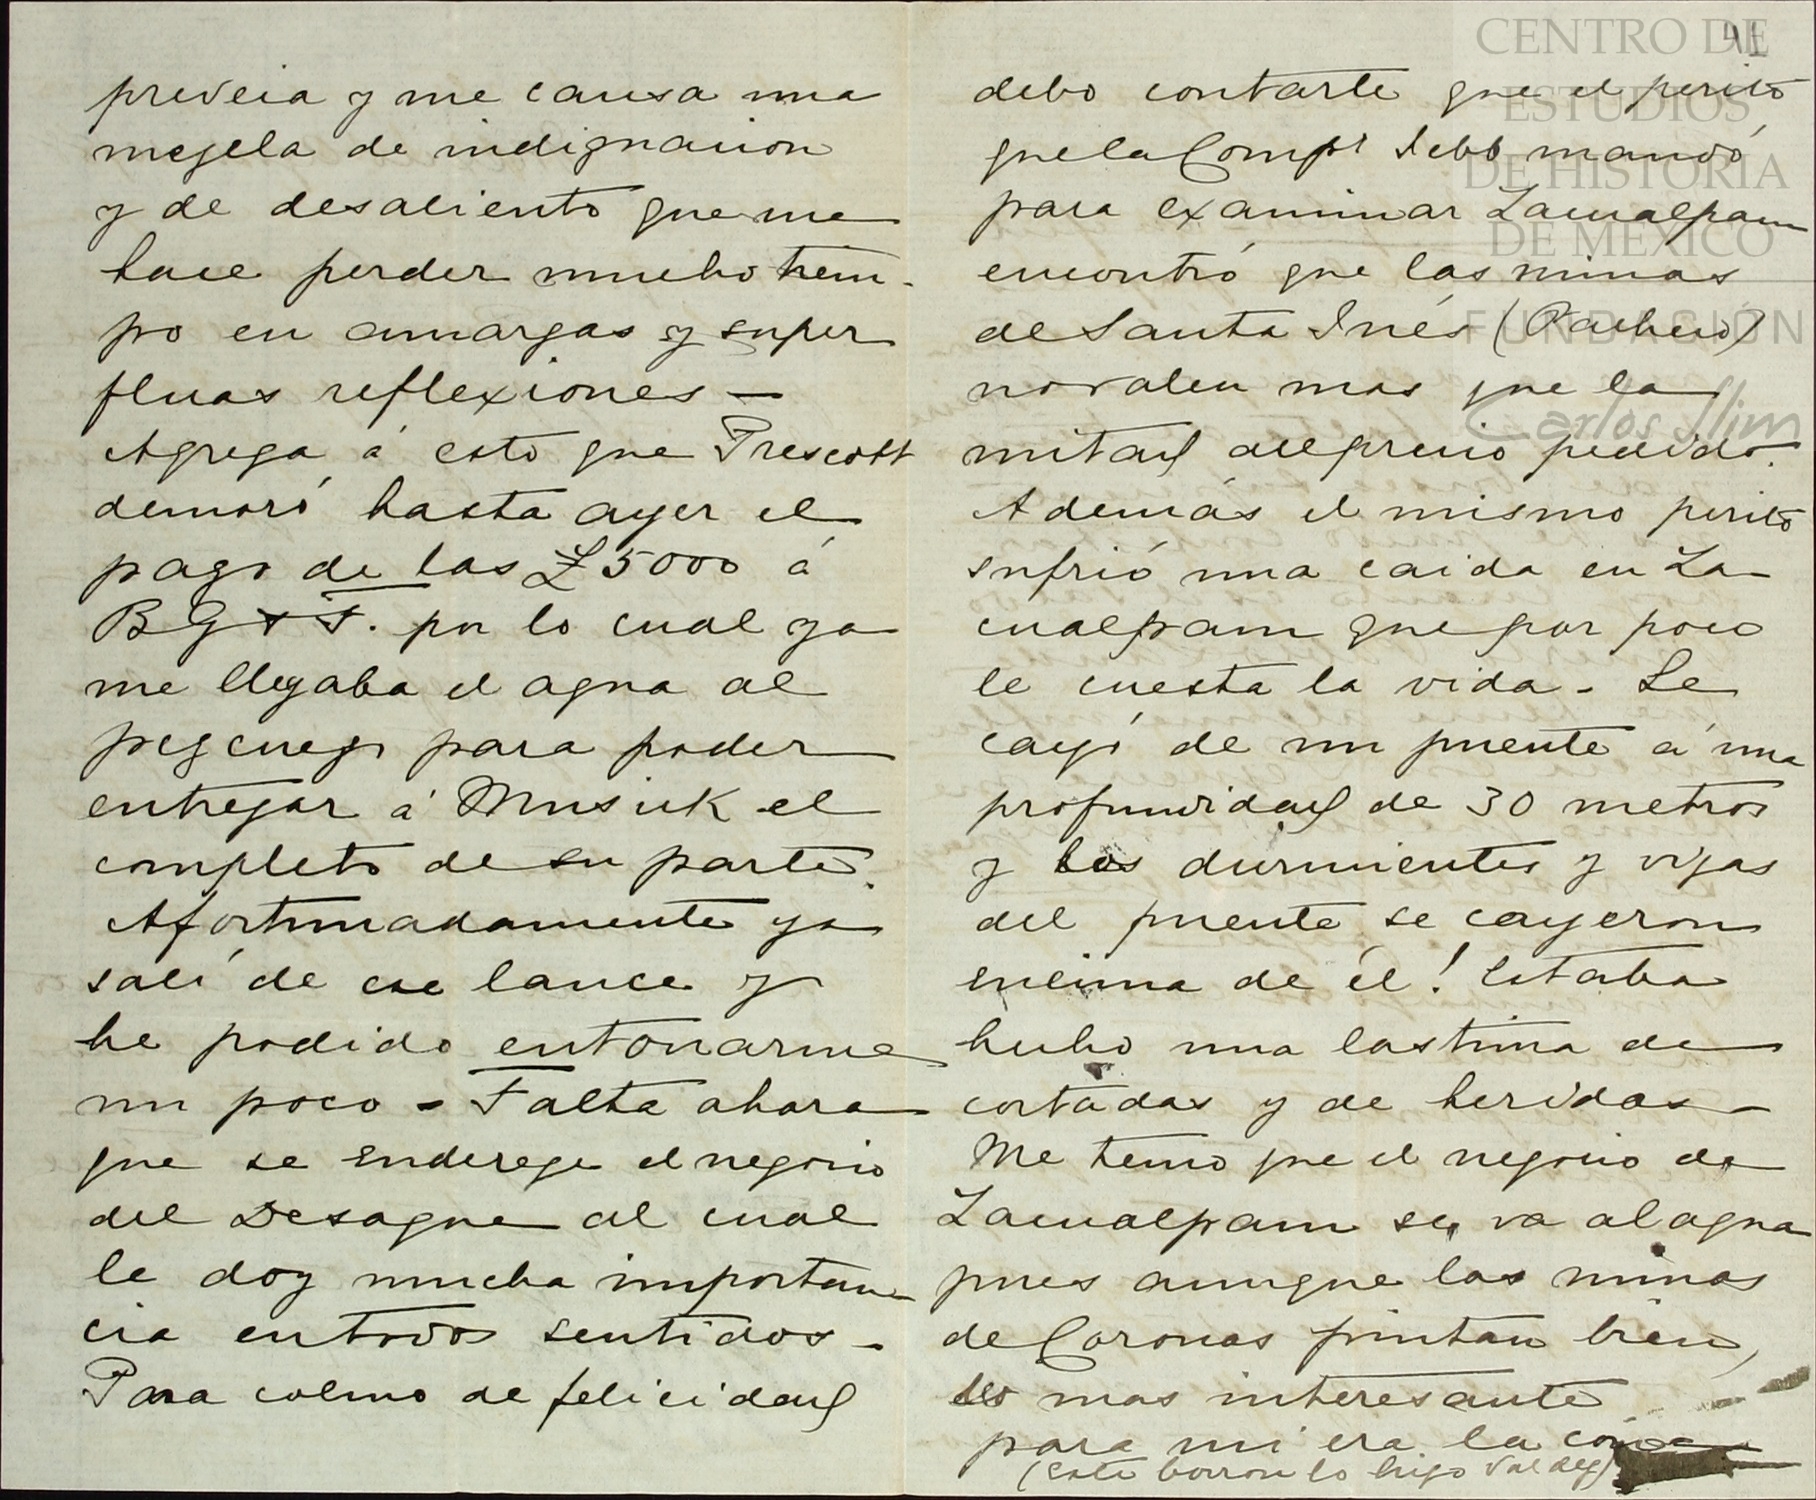 preveia y me causa una
mezcla de indignacion
y de desaliento que me
hace perder mucho tiem-
po en amargas y super
fluas reflexiones —
Agrega á esto que Prescott
demoró hasta ayer el
pago de las £5000 á
B G & S. por lo cual ya
me llegaba el agua al
pezcuezo para poder
entregar á Musick el
completo de su parte.
Afortunadamente ya
salí de ese lance y
he podido entonarme
un poco - Falta ahora
que se enderece el negocio
del Desague al cual
le doy mucha importan-
cia en todos sentidos -
Para colmo de felicidad
41
debo contarte que el perito
que la Compª mandó
para examinar Zacualpam
encontró que las minas
de Santa Inés (Pacheco)
no valen mas que la
mitad del precio pedido.
Además el mismo perito
sufrió una caida en Za
cualpam que por poco
le cuesta la vida - Se
cayó de un puente á una
profundidad de 30 metros
y los durmientes y vigas
del puente se cayeron
encima de él! Estaba
hecho una lastima de
cortadas y de heridas -
Me temo que el negocio de
Zacualpam se va al agua
pues aunque las minas
de Coronas pintan bien,
lo mas interesante
para mi era la
(este borron lo hizo Valdez)
CENTRO DE
ESTUDIOS
DE HISTORIA
DE MEXICO
FUNDACIÓN
Carlos Slim